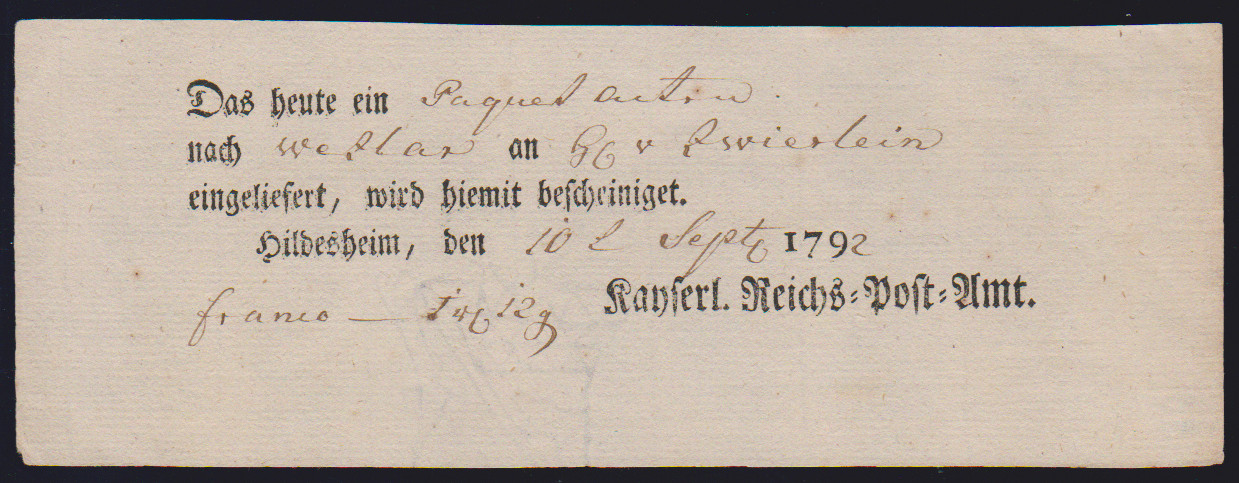 Das heute ein Paquet Acten
nach Wetzlar an H v Zwierlein
eingeliefert, wird hiemit bescheiniget.
Hildesheim, den 10 t Sept 1792
Kayserl. Reichs=Post=Amt.
franco — 1 rх 12 g